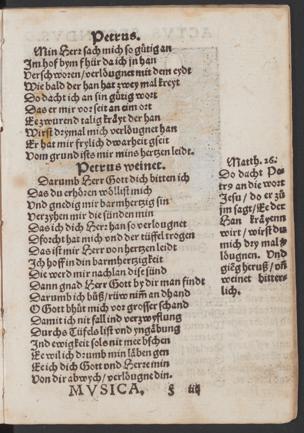 Petrus.
Min Herr sach mich so gütig an
Im hof bym fhür da ich in han
Verschworen / verlöugnet mit dem eydt
Wie bald der han hat zwey mal kreyt
Do dacht ich an sin gütig wort
Das er mir vor seit an eim ort
Ee zwurend talig kräyt der han
Wirst drymal mich verlöugnet han
Er hat mir frylich dwarheit gseit
Vom grund ists mir mins hertzen leidt.
Petrus weinet.
Darumb Herr Gott dich bitten ich
Das du erhören wöllist mich
Und gnedig mir barmhertzig sin
Verzyhen mir die sünden min
Das ich dich Herr han so verlougnet
Dforcht hat mich und der tüffel trogen
Das ist mir Herr von hertzen leidt
Ich hoff in den barmhertzigkeit
Die werd mir nachlan dise sünd
Dann gnad Herr Gott by dir man findt
Darumb ich büß / rüw nim an dhand
O Gott bhüt mich vor grosser schand
Damit ich nit fall ind verzwyflung
Durchs Tüfels list und yngäbung
Ind ewigkeit sols nit mee bschen
Ee wil ich drumb min läben gen
Ee ich dich Gott und Herre min
Von dir abwych / verlöugne din.
MVSICA. iiij
Matth. 26.
Do dacht Pe-
trus an die wort
Jesu / do er zů
jm sagt / Ee der
Han kräyenn
wirt / wirst du
mich dry mal v
löugnen. Und
gieg heruß / un
weinet bitter-
lich.